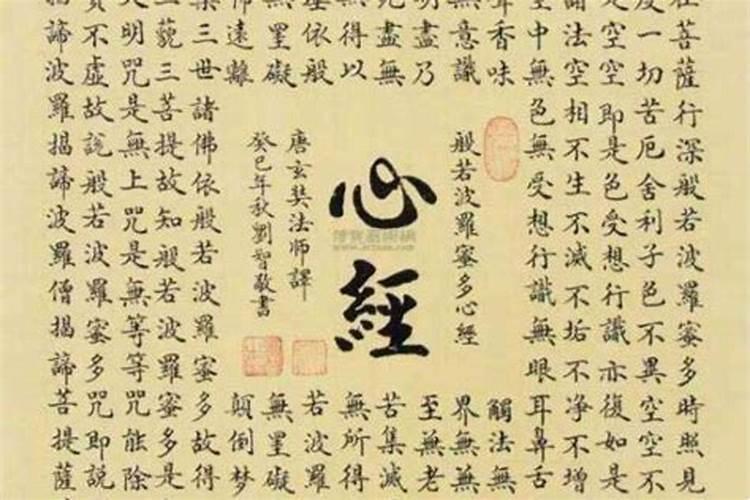 在菩薩行深般若波羅蜜多時照見
度一切苦厄舍利子色不異空空不
是空空即是色受想行識亦復如是
諸法空相不生不滅不垢不淨不增
空中無色無受想行識無眼耳鼻舌
聲香味
觸法無
無意識
界無無
明盡乃
至無老
死盡無
苦集滅
無得以
無所得
依般
若波羅
無罣礙
無罣礙
怖遠離
顛倒夢
槃三世諸佛依般若波羅蜜多故得
三藐三菩提故知般若波羅蜜多是
大明咒是無上咒是無等等咒能除
實不虛故說般若波羅蜜多咒即說
揭諦波羅揭諦波羅僧揭諦菩提薩
般若波羅蜜多心經
心經
唐玄奘法師譯
癸巳年秋劉智敬書